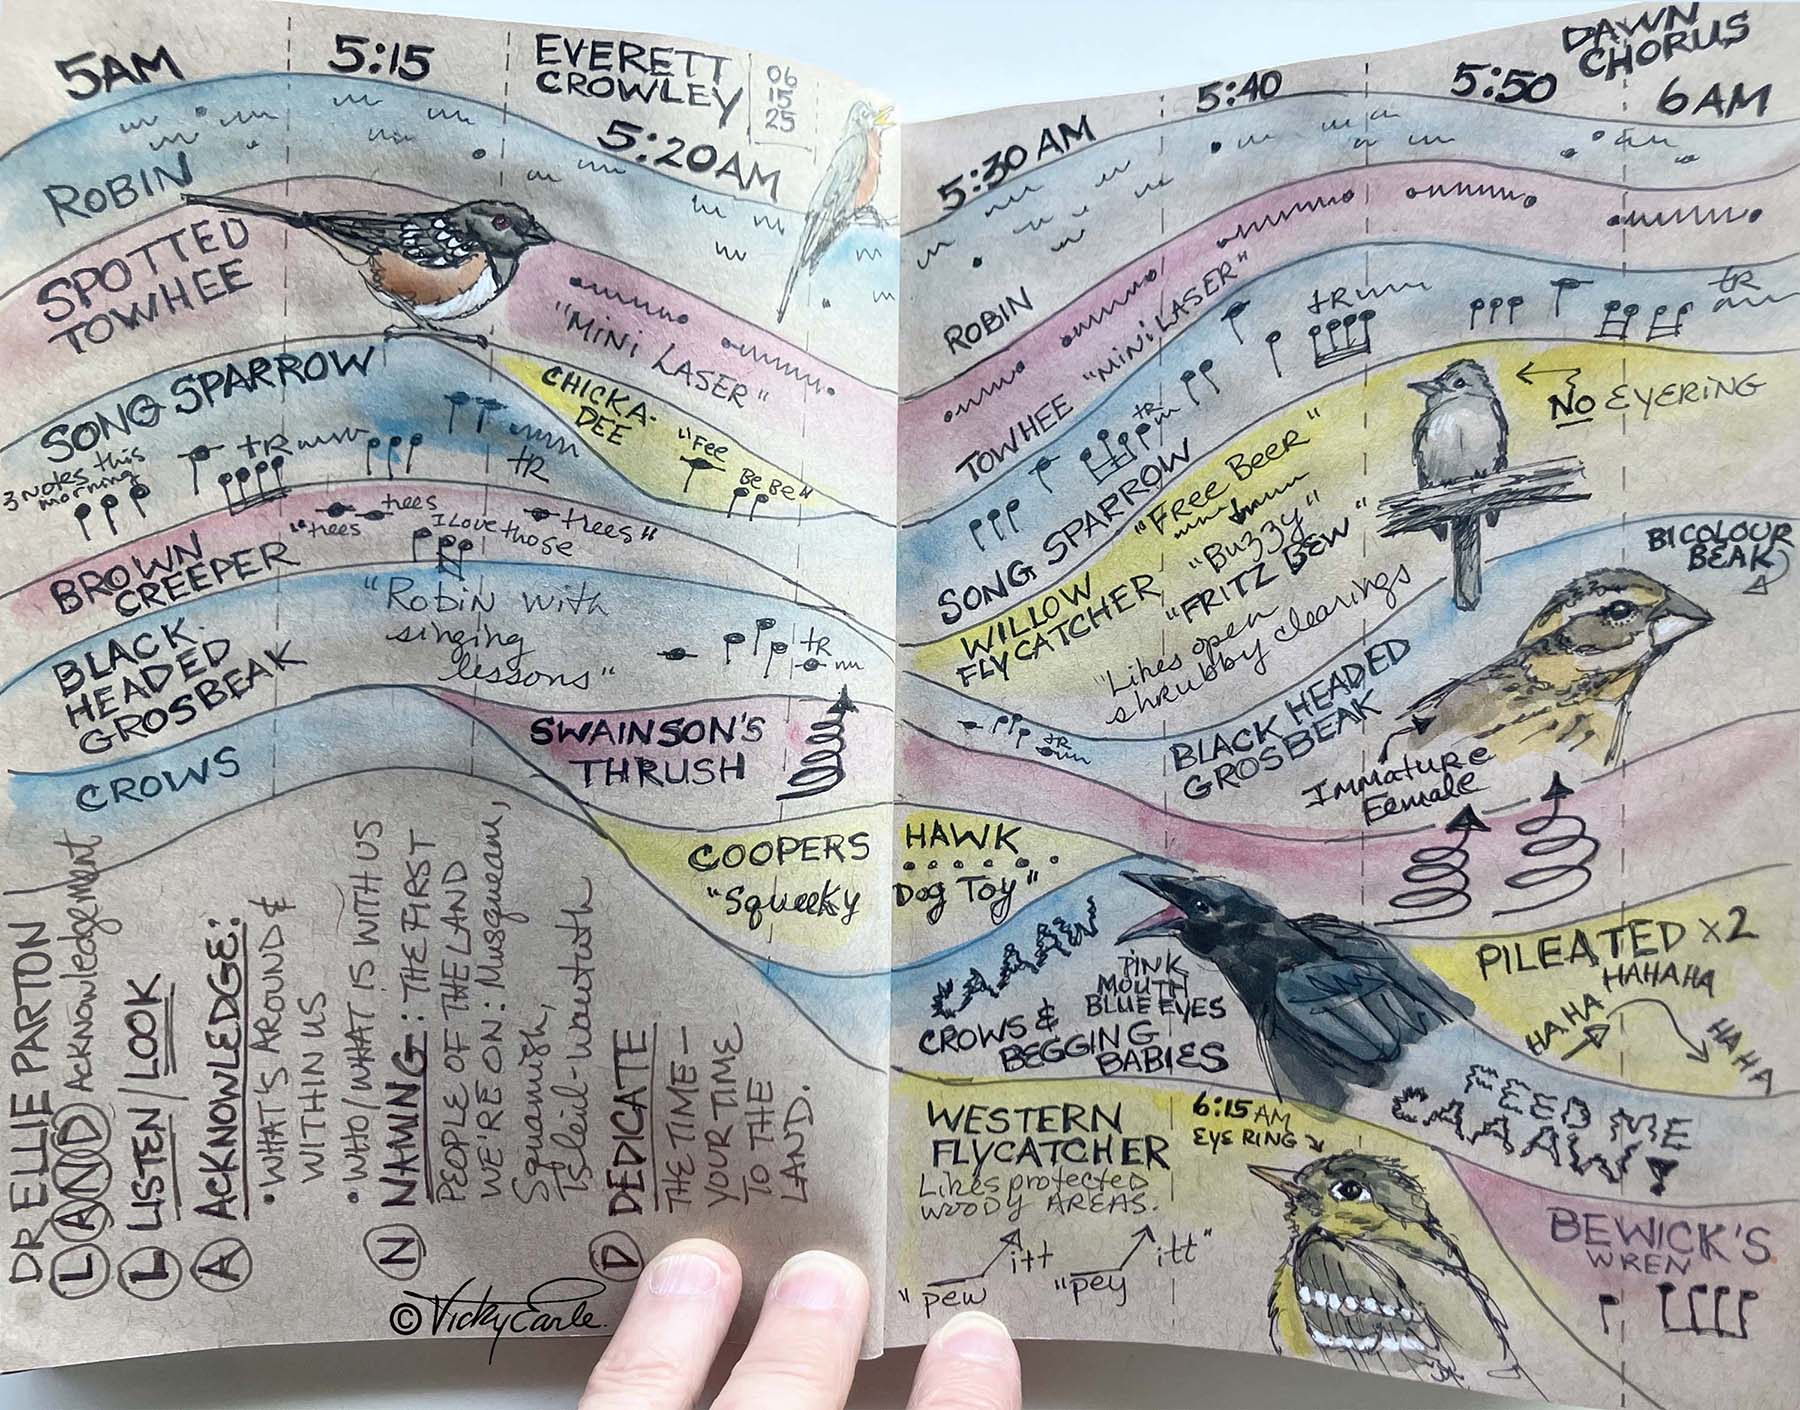 5AM
5:15
EVERETT
CROWLEY
06
15
25
5:20AM
ROBIN
SPOTTED
TOWHEE
"MiNi LASER"
SONG SPARROW
3 NOTES this
morning
tR
tR
CHICKA-
DEE
"Fee
Be Be"
BROWN
CREEPER
"trees
trees
I Love those
trees"
BLACK-
HEADED
GROSBEAK
"Robin with
singing
lessons"
tR
CROWS
SWAINSON'S
THRUSH
COOPERS
"Squeeky
DR ELLIE PARTON /
LAND Acknowledgement
L LISTEN/LOOK
A ACKNOWLEDGE:
• WHAT'S AROUND &
WITHIN US
• WHO/WHAT IS WITH US
N NAMING: THE FIRST
PEOPLE OF THE LAND
WE'RE ON: Musqueam,
Squamish,
Tsleil-waututh
D DEDICATE
THE TIME –
YOUR TIME
TO THE
LAND.
© Vicky Earle
DAWN
CHORUS
5:30 AM
5:40
5:50
6AM
ROBIN
TOWHEE "MiNi LASER"
tR
tR
tR
SONG SPARROW
WILLOW
FLYCATCHER
"FREE BEER"
"Buzzy"
"FRITZ BEW"
"Likes open
shrubby clearings
NO EYERING
BICOLOUR
BEAK
tR
BLACK HEADED
GROSBEAK
Immature
Female
HAWK
Dog Toy"
CAAAW
PINK
MOUTH
BLUE EYES
CROWS &
BEGGING
BABIES
PILEATED x2
HAHA
HAHAHA
HAHA
FEED ME
CAAAAW!
WESTERN
FLYCATCHER
Likes protected
WOODY AREAS.
6:15 AM
EYE RING
"pew
itt
"pey
itt"
BEWICK'S
WREN